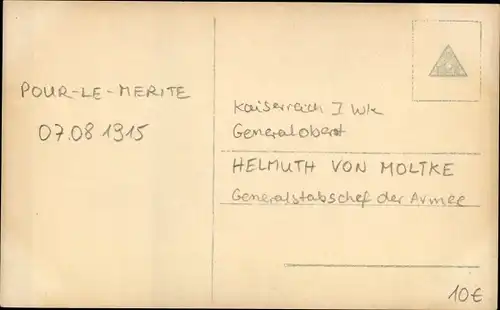 POUR-LE-MERITE
07.08 1915
Kaiserreich I Wk
Generaloberst
HELMUTH VON MOLTKE
Generalstabschef der Armee
10€